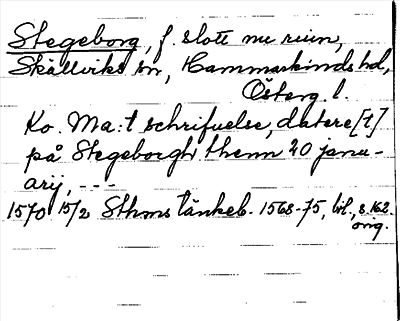 Stegeborg, f. slott nu ruin,
Skällviks sn, Hammarkinds hd,
Österg. l.
Ko. Ma:t schrifuelse, datere[t]
på Stegeborgh thenn 20 janu-
arij, ---
1570 15/2 Sthms tänkeb. 1568-75, bil., s. 162.
orig.